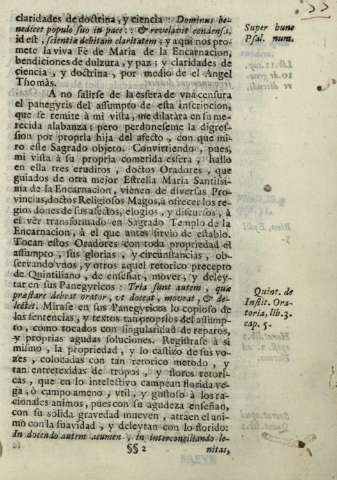 claridades de doctrina, y ciencia: Dominus be-
nedicet populo suo in pace:: & revelavit condensa,
id est, scientia debitam claritatem; y aqui nos pro-
mete la viva Fè de Maria de la Encarnacion,
bendiciones de dulzura, y paz; y claridades de
ciencia, y doctrina, por medio de el Angel
Thomàs.
A no salirse de la esfera de vna censura
el panegyris del assumpto de esta inscripcion,
que se remite à mi vista, me dilatàra en su me-
recida alabanza; pero perdoneseme la digres-
sion por propria hija del afecto, con que mi-
ro este Sagrado objeto. Convirtiendo, pues,
mi vista à su propria cometida esfera; hallo
en ella tres eruditos, doctos Oradores, que
guiados de otra mejor Estrella Maria Santissi-
ma de la Encarnacion, vienen de diversas Pro-
vincias, doctos Religiosos Magos, à ofrecer los re-
gios dones de sus afectos, elogios, y discursos, à
el ver transformado en Sagrado Templo de la
Encarnacion, à el que antes sirviò de establo.
Tocan estos Oradores con toda propriedad el
assumpto, sus glorias, y circunstancias, ob-
servando vnos, y otros aquel retorico precepto
de Quintiliano, de enseñar, mover, y deley-
tar en sus Panegyricos: Tria sunt autem, quæ
præstare debeat orator, vt doceat, moveat, & de-
lectet. Mirase en sus Panegyricos lo copioso de
las sentencias, y textos tan proprios del assump-
to, como tocados con singularidad de reparos,
y proprias agudas soluciones. Registrase à si
mismo, la propriedad, y lo castizo de sus vo-
zes, colocadas con tan retorico metodo, y
tan entretexidas de tropos, y flores retori-
cas, que en lo intelectivo campean florida ve-
ga, ò campo ameno, vtil, y gustoso à los ra-
cionales animos, pues con su agudeza enseñan,
con su sòlida gravedad mueven, atraen el ani-
mo con la suavidad, y deleytan con lo florido:
In docendo autem acumen, in interconciliando le-
§§ 2
nitas,
Super hunc
Psal. num.
Quint. de
Instit. Ora-
toria, lib. 3.
cap. 5.